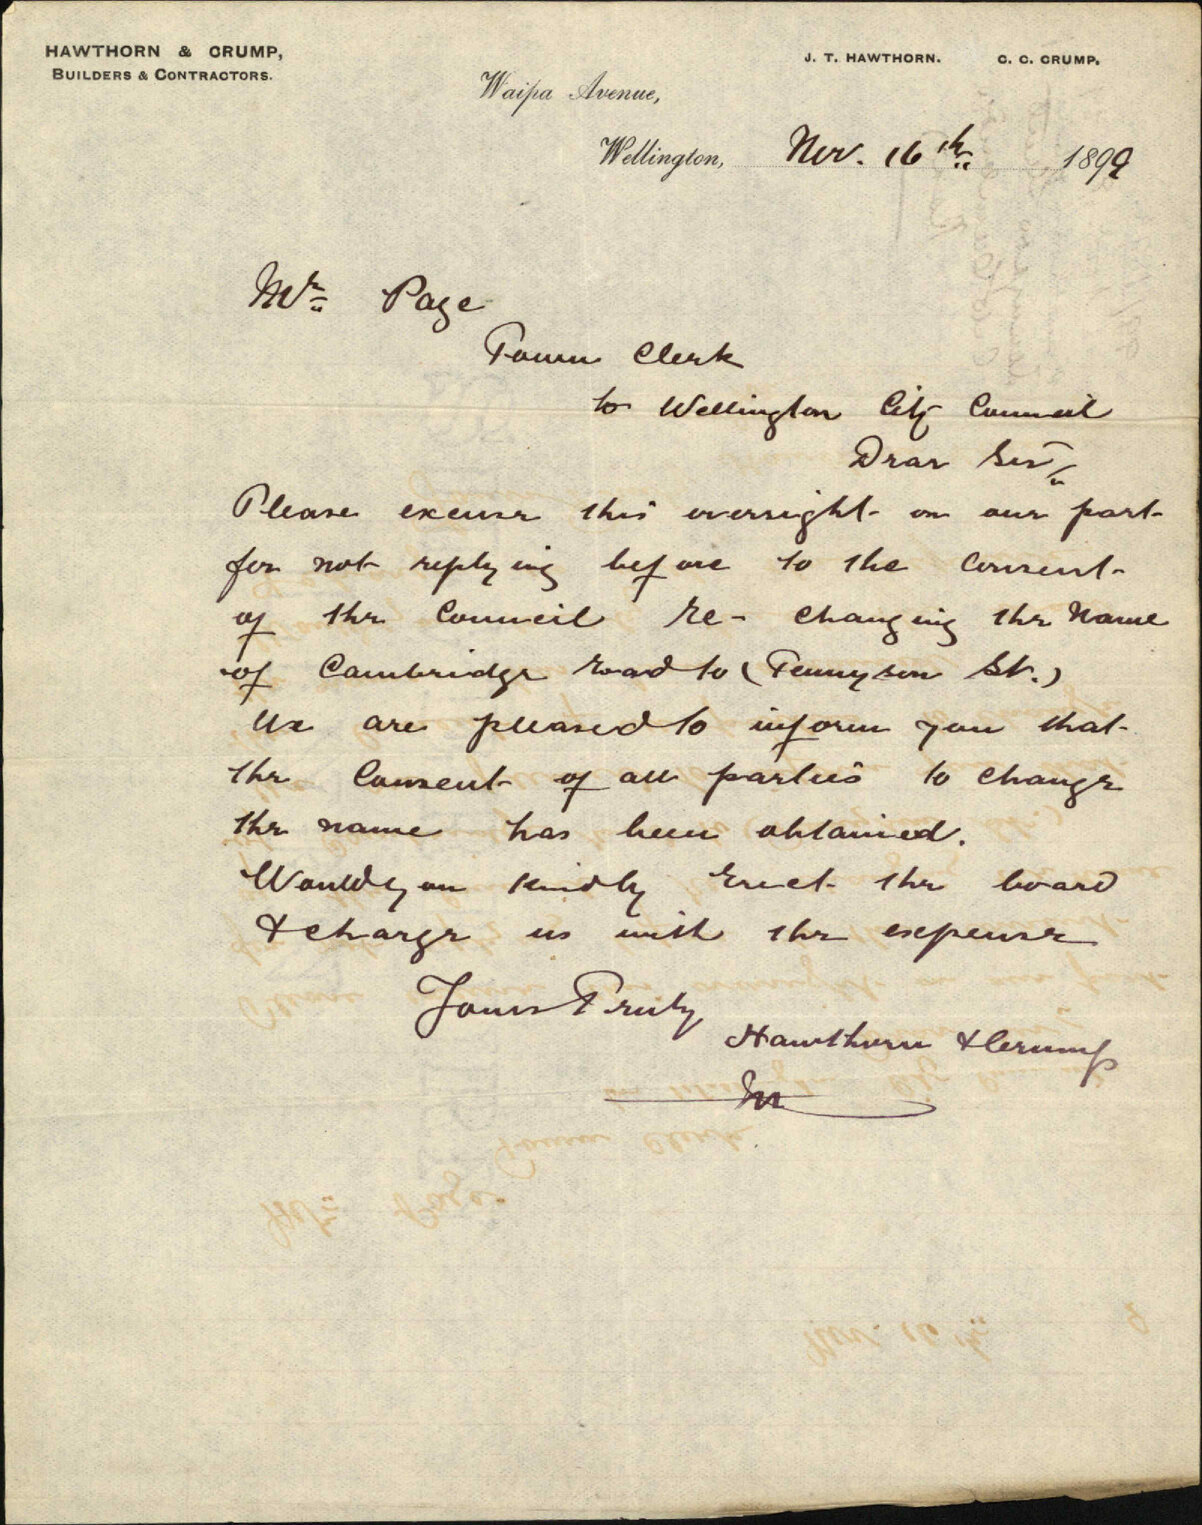 HAWTHORN & CRUMP,
BUILDERS & CONTRACTORS.
J. T. HAWTHORN. C. C. CRUMP.
Waipa Avenue,
Wellington, Nov. 16th 1899
Mr Page
Town Clerk
to Wellington City Council
Dear Sir
Please excuse this oversight on our part
for not replying before to the Consent
of the Council re- changing the Name
of Cambridge road to (Tennyson St.)
We are pleased to inform you that
the Consent of all parties to change
the name has been obtained.
Would you kindly Erect the board
& charge us with the expense
Yours Truly
Hawthorn & Crump